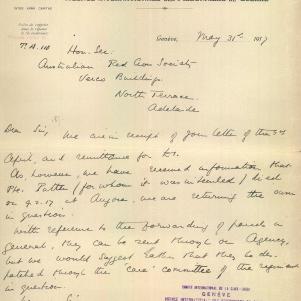 Genève, May 31st 1917
Hon. Sec:
Australian Red Cross Society
Verco Buildings
North Terrace
Adelaide
Dear Sir, We are in receipt of your letter of the
April, and remittance for
As, however, we have received information that
Pte. (for whom it was intended) died
on 9.2.17 at Angora, we are returning the sum
in question.
With reference to the forwarding of parcels in
General, they can be sent through our Agency,
but we would suggest rather that they be des-
patched through the "care" committee of the regiment
in question.
COMITÉ INTERNATIONAL DE LA CROIX-ROUGE
GENÈVE